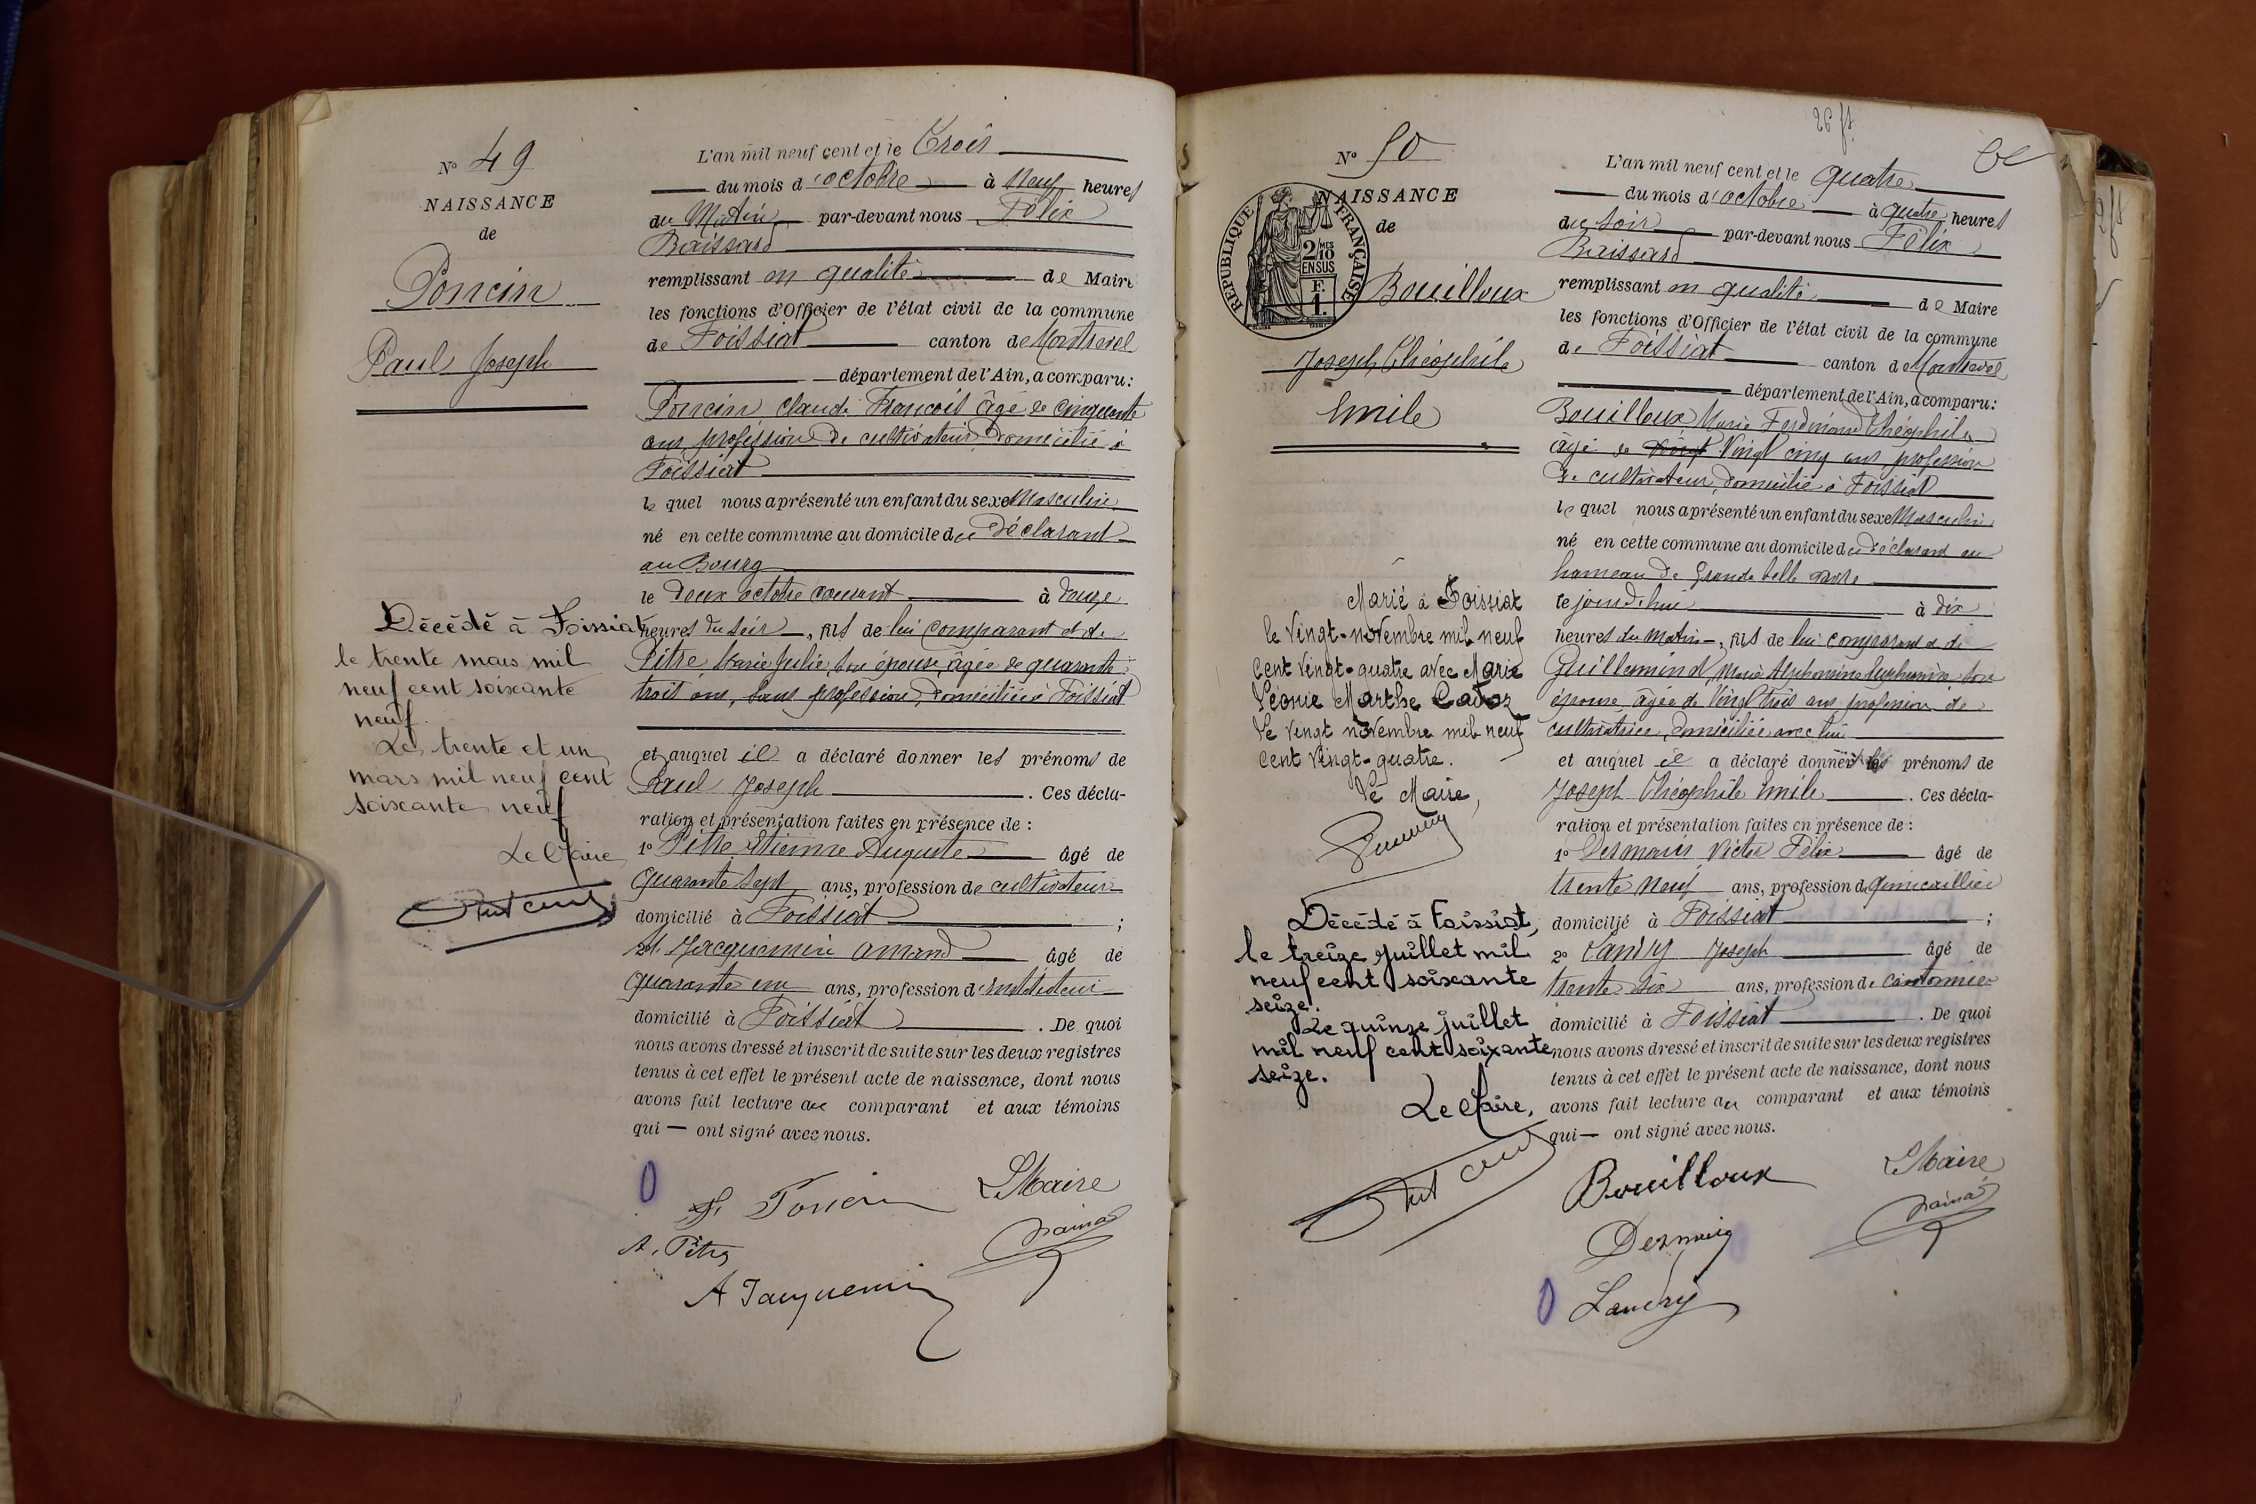 N° 49
NAISSANCE
de
Poncin
Paul Joseph
Décédé à Foissiat
le trente mars mil
neuf cent soixante
neuf.
Le trente et un
mars mil neuf cent
soixante neuf
Le Maire
L'an mil neuf cent et le Trois
du mois d'octobre à Neuf heures
du Matin par-devant nous Félix
remplissant en qualité de Maire
les fonctions d'Officier de l'état civil de la commune
de Foissiat canton de Montrevel
département de l'Ain, a comparu :
Poncin Claude François âgé de cinquante
ans profession de cultivateur domicilié à
Foissiat
le quel nous a présenté un enfant du sexe Masculin
né en cette commune au domicile du déclarant
au Bourg
le deux octobre courant à onze
heures du soir, fils de lui comparant et de
Pitre Marie Julie, son épouse, âgée de quarante
trois ans, sans profession, domiciliée à Foissiat
et auquel il a déclaré donner les prénoms de
Paul Joseph . Ces décla-
ration et présentation faites en présence de :
1° Pitre Etienne Auguste âgé de
quarante sept ans, profession de cultivateur
domicilié à Foissiat ;
2° Jacquemin Amand âgé de
quarante un ans, profession d'instituteur
domicilié à Foissiat . De quoi
nous avons dressé et inscrit de suite sur les deux registres
tenus à cet effet le présent acte de naissance, dont nous
avons fait lecture au comparant et aux témoins
qui — ont signé avec nous.
Poncin
Le Maire
A. Pitre
A Jacquemin
N° 50
NAISSANCE
de
REPUBLIQUE FRANÇAISE
2/10 MES
EN SUS
F.
1.
Bouilloux
Joseph Théophile
Emile
Marié à Foissiat
le vingt-novembre mil neuf
cent vingt-quatre avec Marie
Léonie Marthe Cadoz
Le vingt novembre mil neuf
cent vingt-quatre.
Le Maire,
Décédé à Foissiat,
le treize juillet mil
neuf cent soixante
seize.
Le quinze juillet
mil neuf cent soixante
seize.
Le Maire,
L'an mil neuf cent et le quatre
du mois d'octobre à quatre heures
du soir par-devant nous Félix
remplissant en qualité de Maire
les fonctions d'Officier de l'état civil de la commune
de Foissiat canton de Montrevel
département de l'Ain, a comparu :
Bouilloux Marie Ferdinand Théophile
âgé de vingt cinq ans profession
de cultivateur, domicilié à Foissiat
le quel nous a présenté un enfant du sexe Masculin
né en cette commune au domicile du déclarant au
hameau de Grande
le jourd'hui à dix
heures du matin, fils de lui comparant et de
Guillemind, Marie Alphonsine son
épouse, âgée de vingt trois ans, profession de
cultivatrice, domiciliée avec lui
et auquel il a déclaré donner les prénoms de
Joseph Théophile Emile . Ces décla-
ration et présentation faites en présence de :
1° Desmaris Victor Félix âgé de
trente neuf ans, profession de quincaillier
domicilié à Foissiat ;
2° Landry Joseph âgé de
trente six ans, profession de cantonnier
domicilié à Foissiat . De quoi
nous avons dressé et inscrit de suite sur les deux registres
tenus à cet effet le présent acte de naissance, dont nous
avons fait lecture au comparant et aux témoins
qui — ont signé avec nous.
Bouilloux
Le Maire
Landry